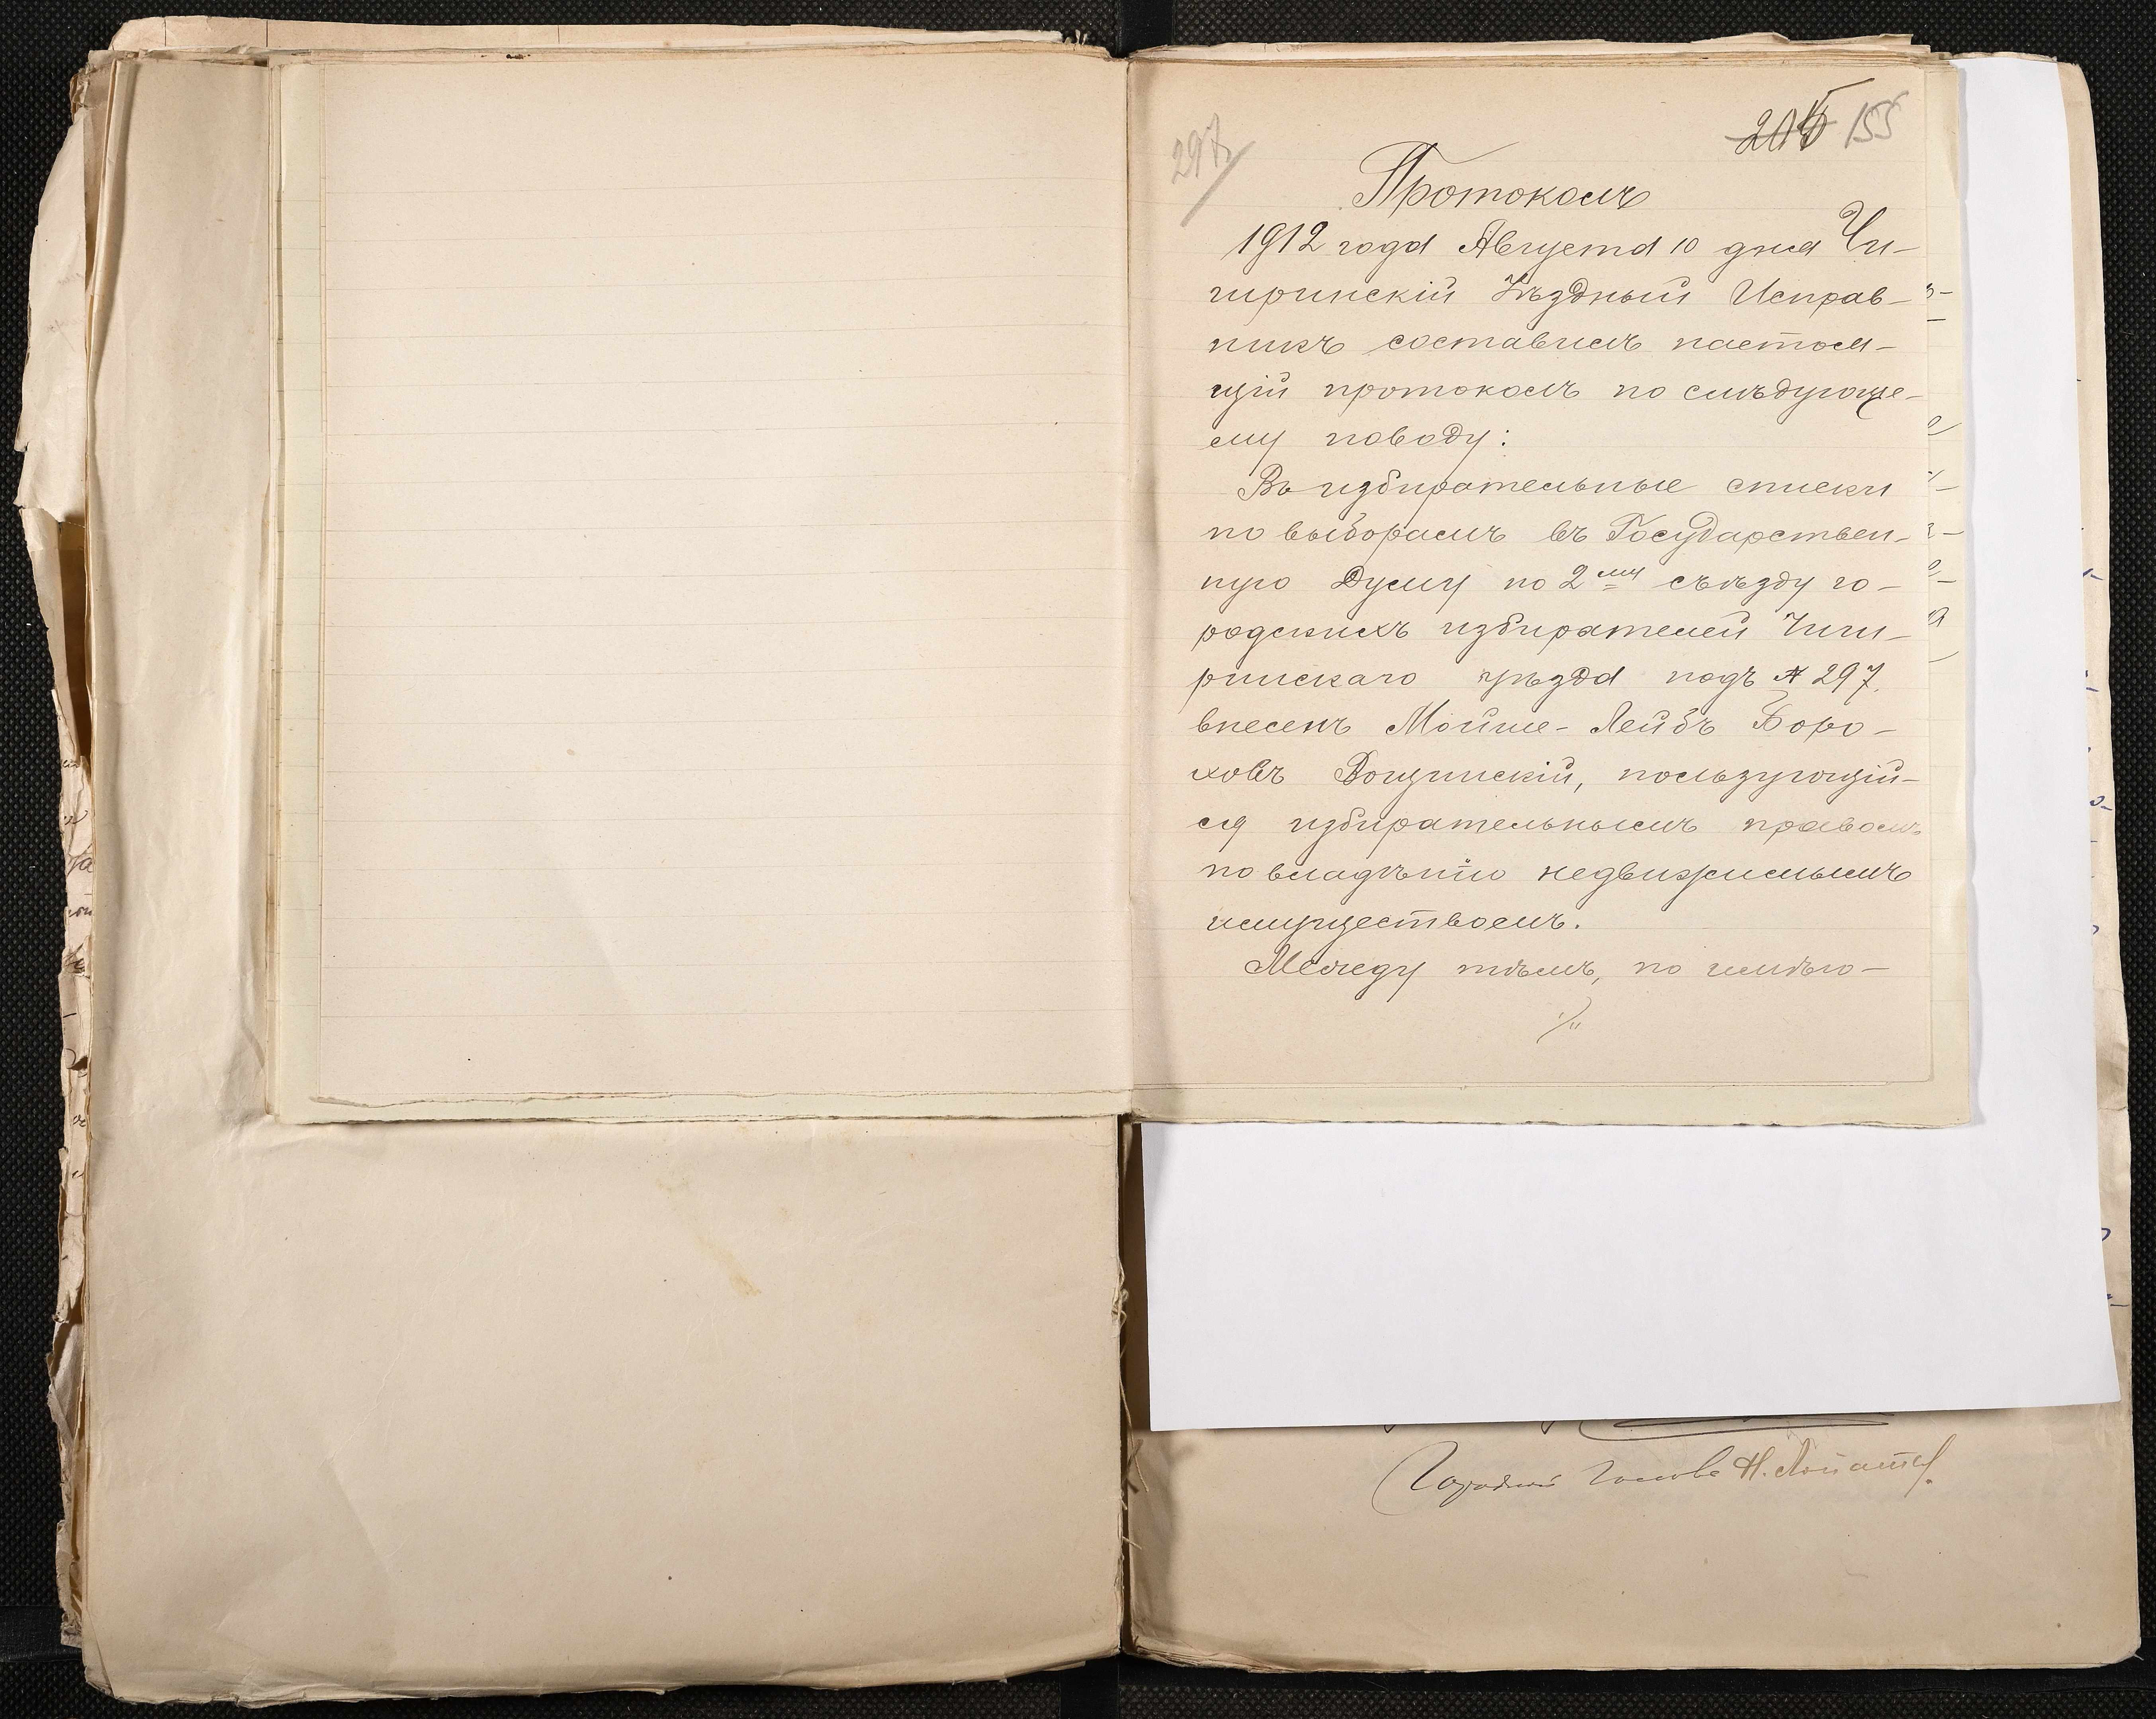 297
205 155
Протоколъ
1912 года Августа 10 дня Чи-
гиринскій Уѣздный Исправ-
никъ составилъ настоя-
щій протоколъ по слѣдующе-
ему поводу:
Въ избирательные списки
по выборамъ въ Государствен-
ную Думу по 2му съѣзду го-
родскихъ избирателей Чиги-
ринскаго уѣзда подъ № 297
внесенъ Мойше-Лейбъ Боро-
ховъ Вощинскій, пользующій-
ся избирательнымъ правомъ
по владѣнію недвижимымъ
имуществомъ.
Между тѣмъ, по имѣю-
Городской Голова Н.